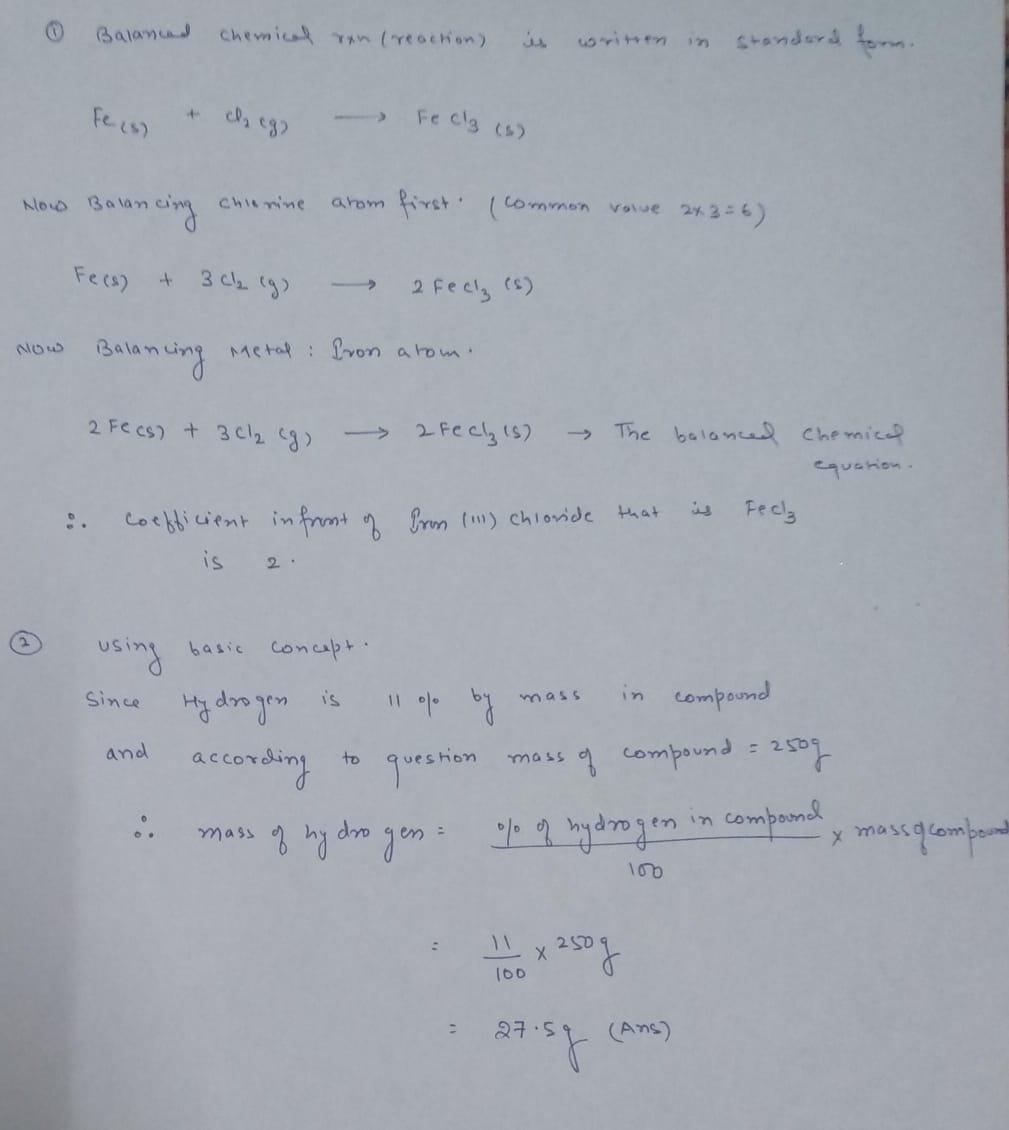 ① Balanced chemical rxn (reaction) is written in standard form.
Fe(s) + Cl2 (g) → FeCl3 (s)
Now Balancing chlorine atom first. (common value 2x3=6)
Fe(s) + 3Cl2 (g) → 2FeCl3 (s)
Now Balancing Metal : Iron atom.
2Fe(s) + 3Cl2 (g) → 2FeCl3 (s) → The balanced chemical
equation.
∴ coefficient infront of Iron (III) chloride that is FeCl3
is 2.
② using basic concept.
Since Hydrogen is 11 % by mass in compound
and according to question mass of compound = 250g
∴ mass of hydrogen = % of hydrogen in compound x mass of compound
100
= 11/100 x 250g
= 27.5g (Ans)